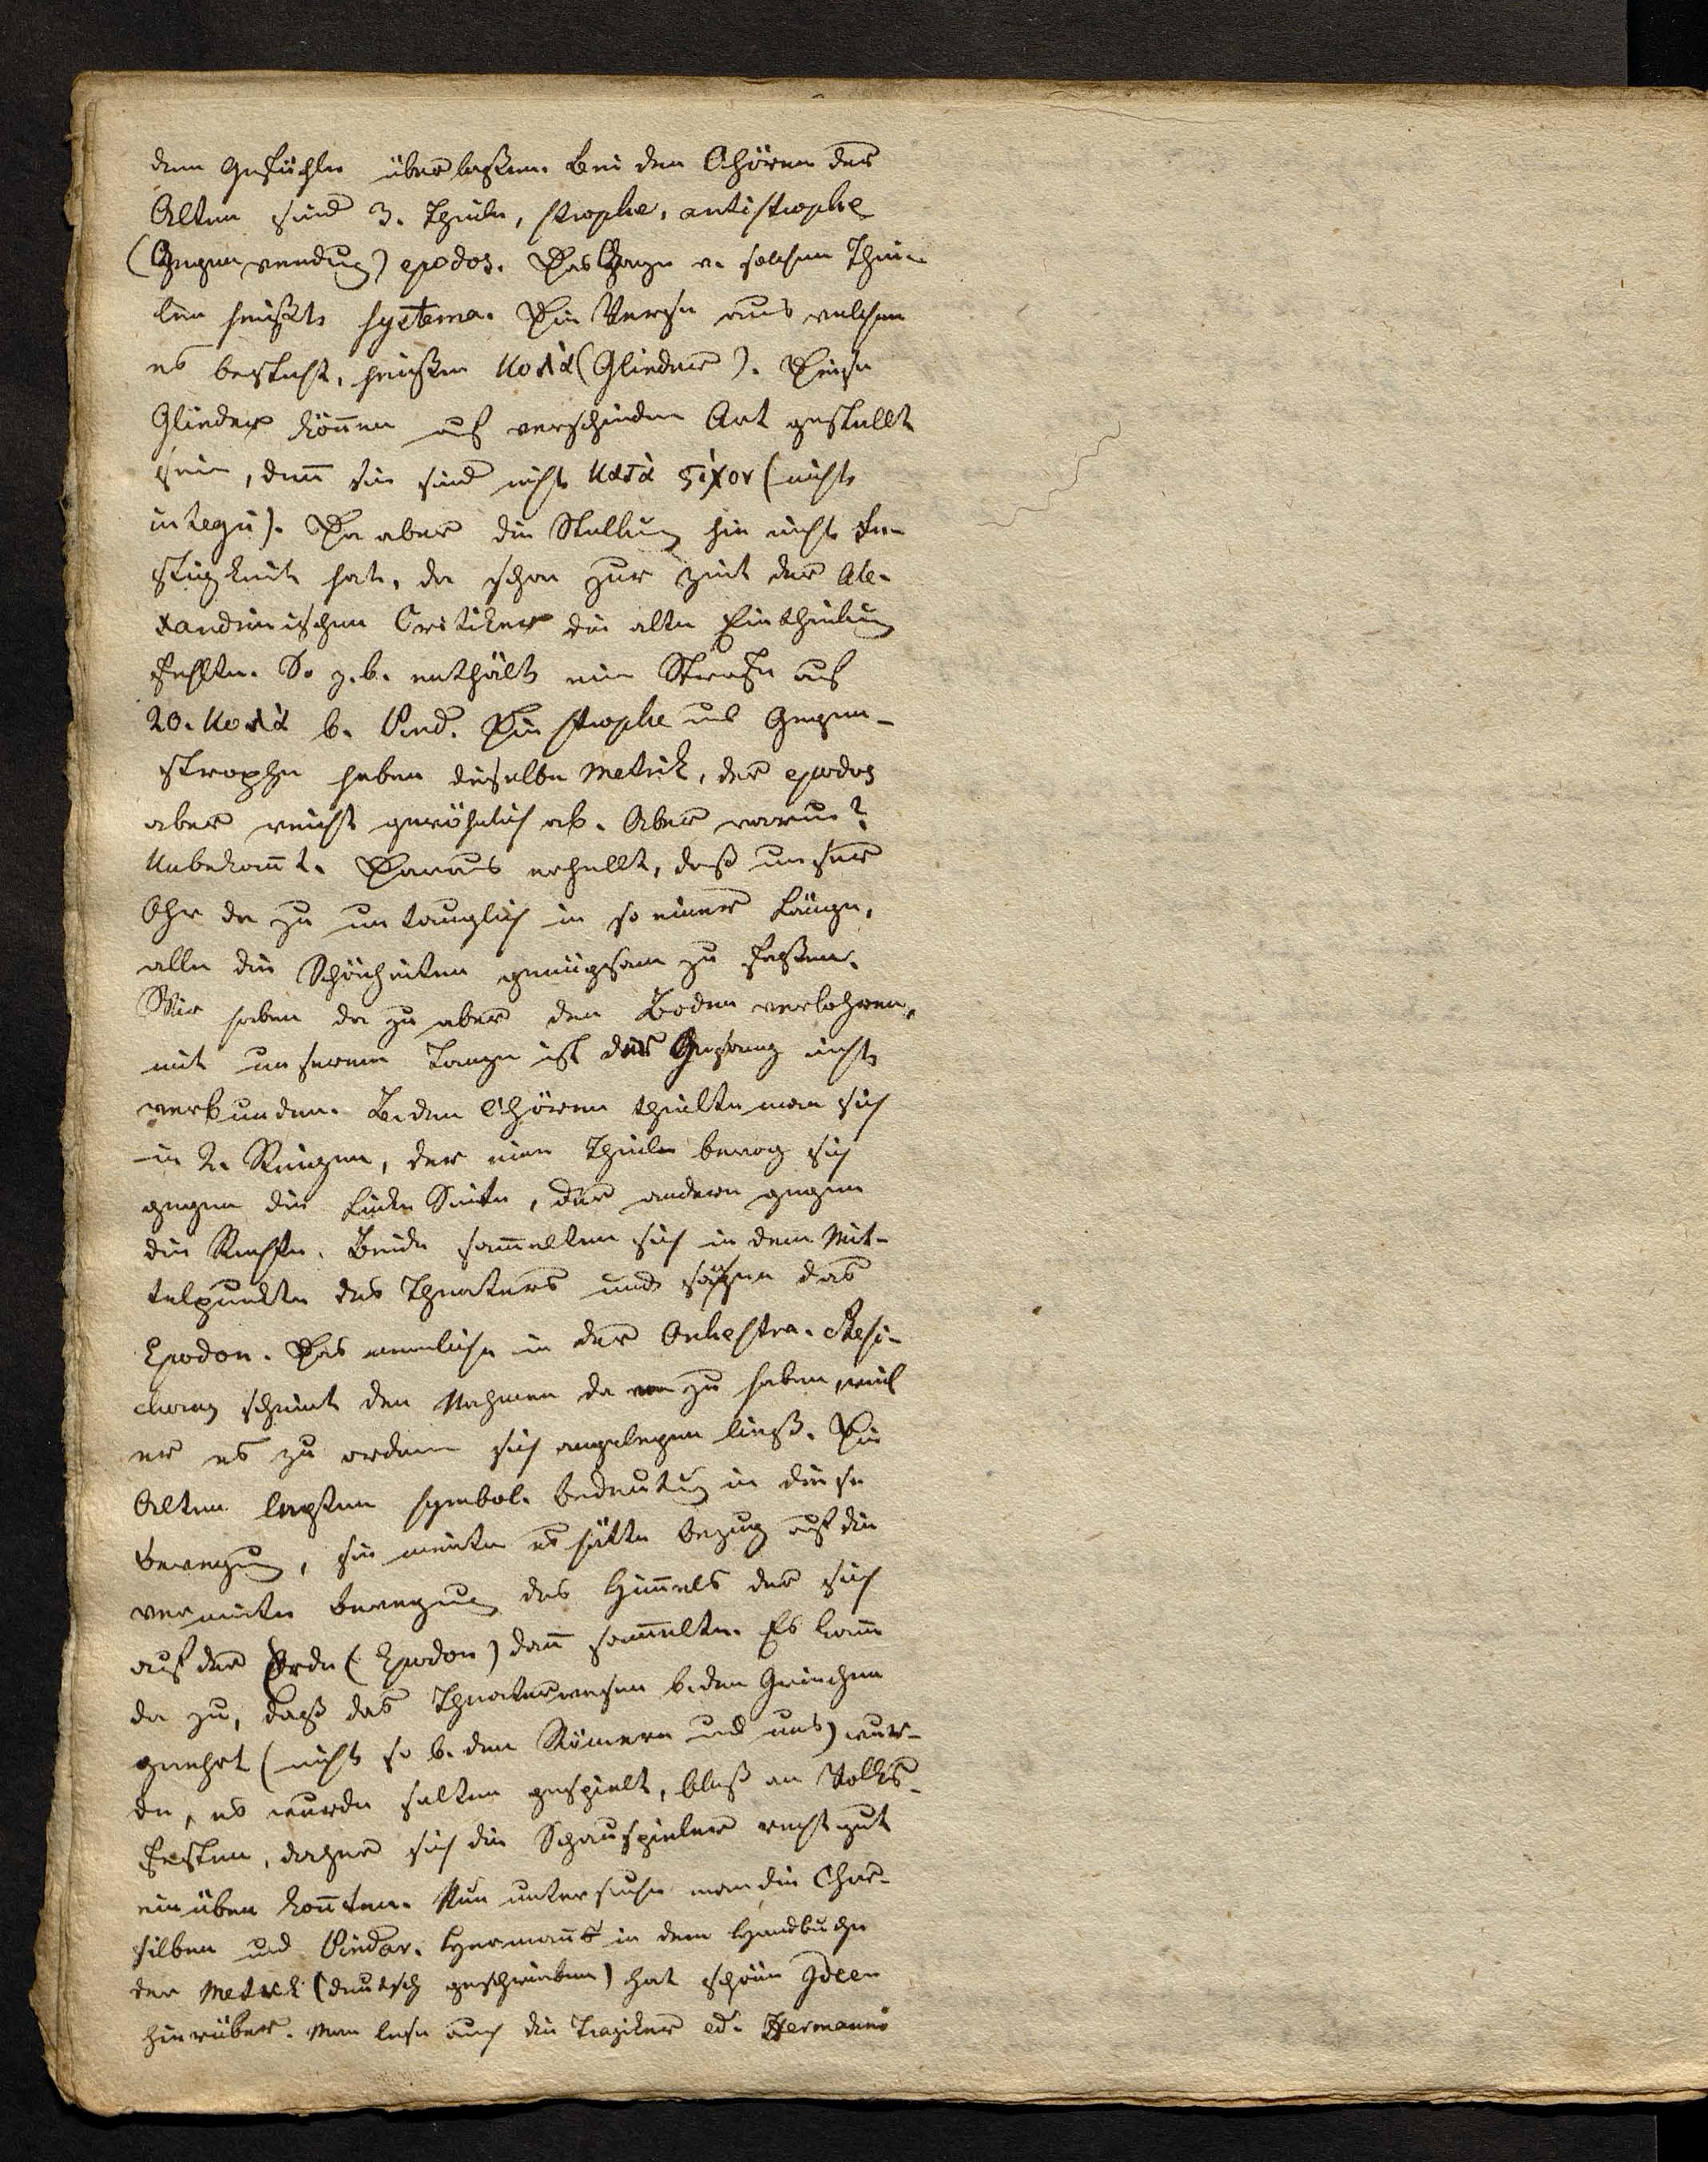 dem Gefühle überlaßen. Bei den Chören der
Alten sind 3. Theile, strophe, antistrophe
(Gegenwendung) epodos. Das Ganze v. solchen Thei-
len heißts systema. Die Verse aus welchen
es besteht, heißen κολὰ (Glieder). Diese
Glieder können auf verschieden Art gestellt
sein, denn sie sind nicht κατὰ ςίχον (nicht
integri). Da aber die Stellung hie nicht Fe-
stigkeit hat, da schon zur Zeit der Ale-
xandrinischen Critiker die alte Eintheilung
fehlte. So z. b. enthält eine Strofe auf
20. κολὰ b. Pind. Die strophe und Gegen-
strophe haben dieselbe Metrik, der epodos
aber weicht gewöhnlich ab. Aber warum?
Unbekannt. Daraus erhellt, daß unser
Ohr da zu untauglich in so einer Länge,
alle die Schönheiten genügsam zu faßen.
Wir haben da zu aber den Boden verlohren,
mit unserem Tanze ist der Gesang nicht
verbunden. B. den Chören theilte man sich
in 2. Reigen, der eine Theile bewog sich
gegen die Linke Seite, der andere gegen
die Rechte. Beide sammelten sich in dem Mit-
telpunkte des Theaters und sangen das
Epodon. Das nemliche in der Orchestra. Stesi-
choros scheint den Nahmen da von zu haben, weil
er es zu ordnen sich angelegen ließ. Die
Alten legten symbol. Bedeutung in diese
Bewegung, sie meinten es hätte Bezug auf die
vermeinte Bewegung des Himmels der sich
auf der Erde (Epodon) dann sammelte. Es kam
da zu, daß das Theaterwesen b. den Griechen
geehrt (nicht so b. den Römern und uns) wur-
de, es wurde selten gespielt, bloß an Volks-
festen, daher sich die Schauspieler recht gut
einüben konnten. Nun untersuche man die Chor-
silben und Pindar. Hermann in dem Handbuche
der Metrik (deutsch geschrieben) hat schöne Ideen
hierüber. Man lese auch die Tragiker ed. Hermanni